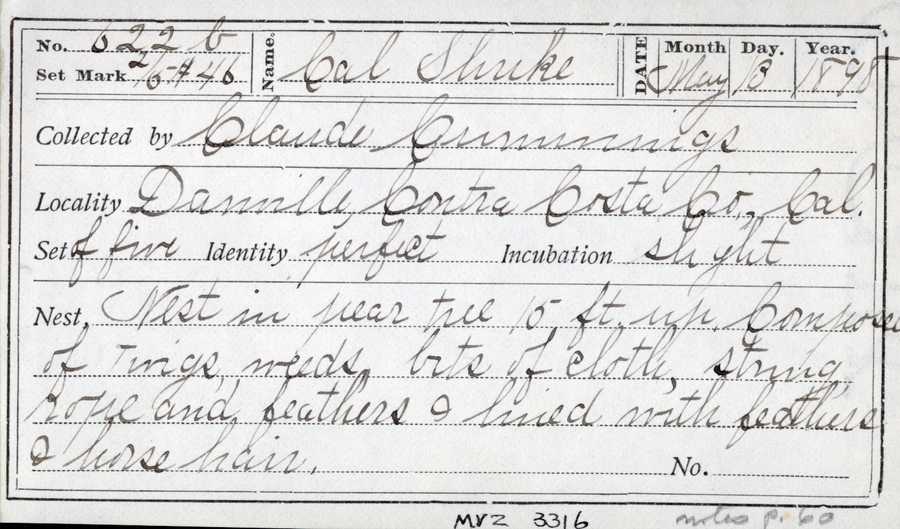 No. 622 b Name. Cal Shrike DATE Month May Day. 13 Year. 1898
Set Mark 2/5-#46
Collected by Claude Cummings
Locality Danville Contra Costa Co., Cal.
Set of five Identity perfect Incubation slight
Nest, Nest in pear tree 15 ft. up. Composed
of twigs, weeds, bits of cloth, string,
rope and feathers & lined with feathers
& horse hair. No.
MVZ 3316 notes p. 60